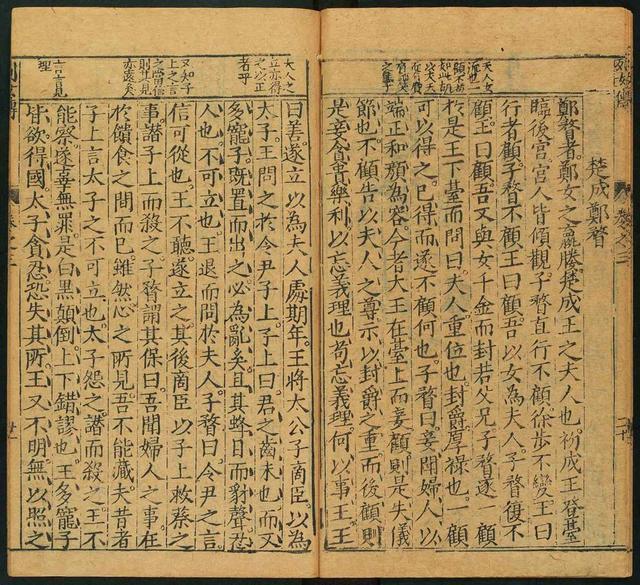 楚成鄭瞀
鄭瞀者鄭女之嬴媵楚成王之夫人也初成王登臺
臨後宮宮人皆傾觀子瞀直行不顧徐步不變王曰
行者顧子瞀不顧王曰顧吾以女為夫人子瞀復不
顧王曰顧吾又與女千金而封若父兄子瞀遂一顧
於是王下臺而問曰夫人重位也封爵厚祿也一顧
可以得之已得而遂不顧何也子瞀曰妾聞婦人以
端正和顏為容今者大王在臺上而妾顧則是失儀
節也不顧告以夫人之尊示以封爵之重而後顧則
是妾貪貴樂利以忘義理也苟忘義理何以事王王
夫人之
立亦得
之以正
者乎
又知子
上之言
之當信
則其見
亦遠矣
曰善遂立以為夫人處期年王將太公子商臣以為
太子王問之於令尹子上子上曰君之齒未也而又
多寵子既置而出之必為亂矣且其蜂目而豺聲忍
人也不可立也王退而問於夫人子瞀曰令尹之言
信可從也王不聽遂立之其後商臣以子上救蔡之
事譖子上而殺之子瞀謂其保曰吾聞婦人之事在
於饋食之間而已雖然心之所見吾不能藏夫昔者
子上言太子之不可立也太子怨之譖而殺之王不
能察遂辜無罪是白黑顛倒上下錯謬也王多寵子
皆欲得國太子貪忍恐失其所王又不明無以照之